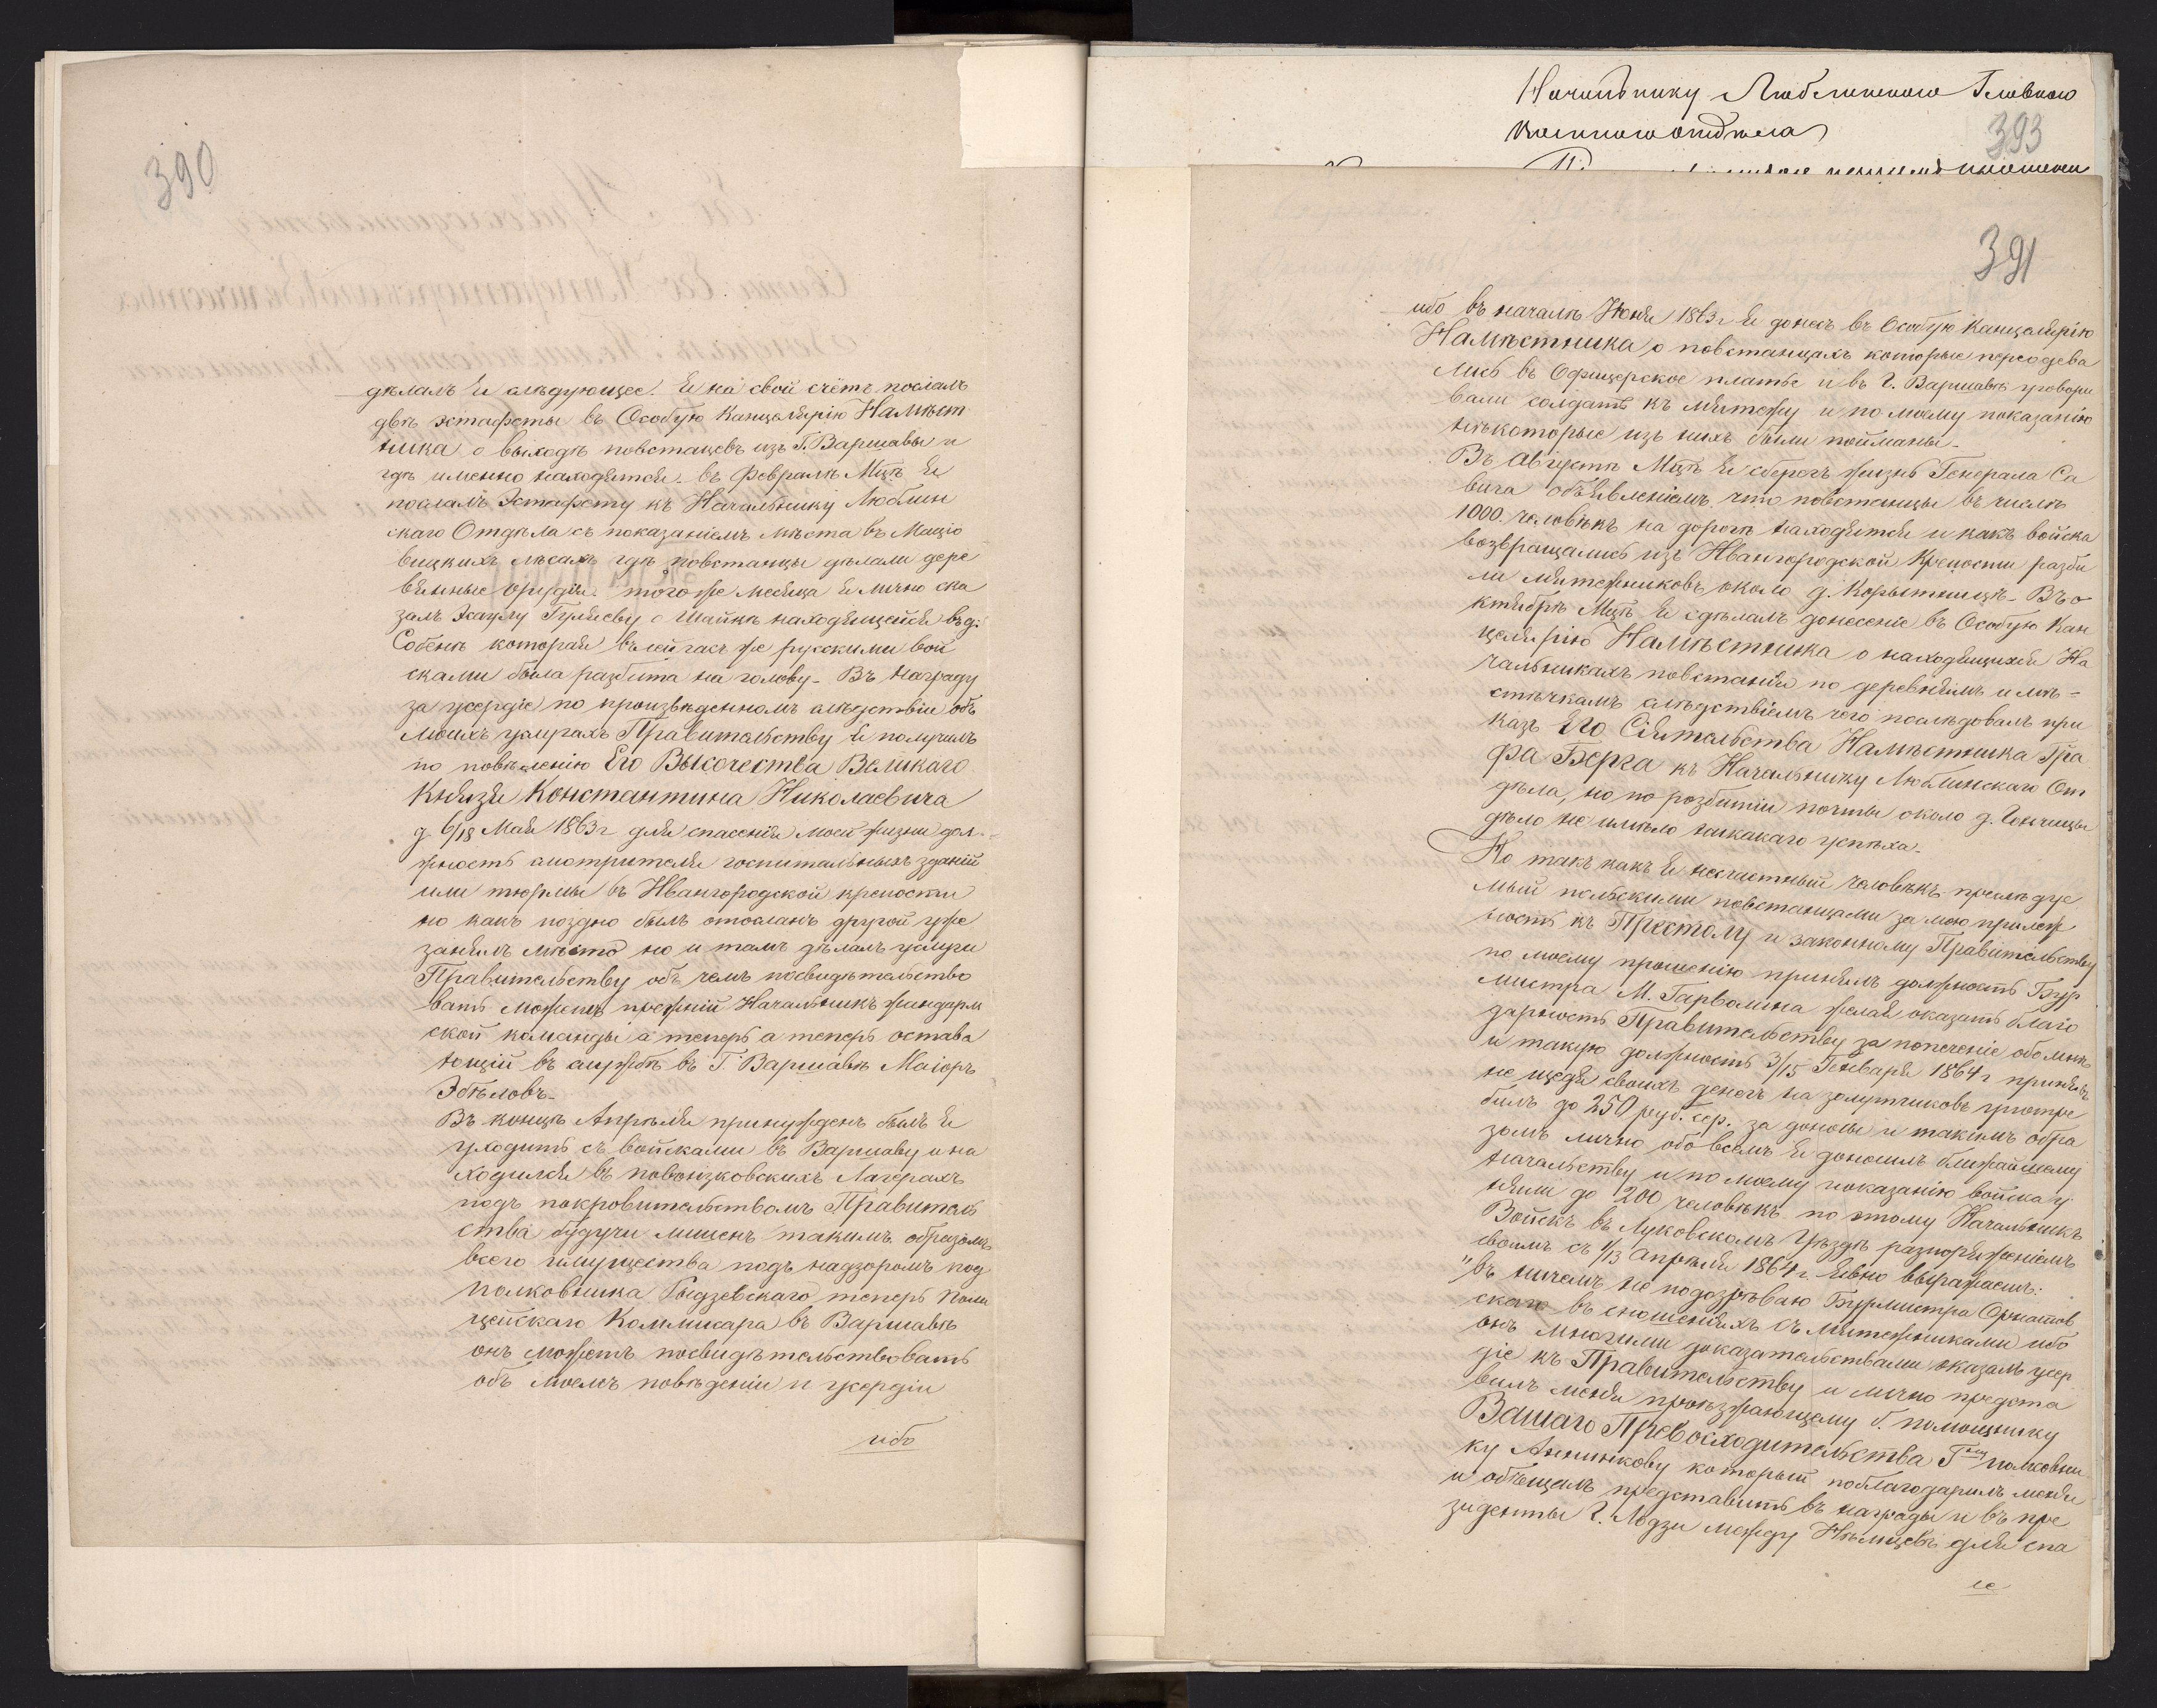 390
дѣлалъ я слѣдующее. Я на свой счётъ послалъ
двѣ эстафеты въ Особую Канцелярію Намѣст
ника о выходѣ повстанцевъ изъ Г. Варшавы и
гдѣ именно находятся. въ Февралѣ Мцѣ я
послалъ Эстафету къ Начальнику Люблин
скаго Отдѣла съ показаніемъ мѣста въ Маціо
вицкихъ лѣсахъ гдѣ повстанцы дѣлали дере
вянные орудія. того же месяца я лично ска
залъ Эсаулу Гуляеву о Шайкѣ находящейся въ д:
Собенѣ которая въ сей часъ же рускими вой
сками была разбита на голову_ Въ награду
за усердіе по произвѣденномъ слѣдствіи объ
моихъ услугахъ Правительству я получилъ
по повѣленію Его Высочества Великаго
Князя Константина Николаевича
д. 6/18 Мая 1863 г для спасенія моей жизни дол-
жность смотрителя госпитальныхъ зданій
или тюрмы въ Ивангородской крепости
но какъ поздно былъ отосланъ другой уже
занялъ мѣсто но и тамъ дѣлалъ услуги
Правительству объ чемъ посвидѣтельство
вать можетъ прежній Начальникъ жандарм
ской команды а теперь а теперь остава
ющій въ службѣ въ Г. Варшавѣ Маіоръ
Збѣловъ_
Въ концѣ Апрѣля принужденъ былъ я
уходить съ войсками въ Варшаву и на
ходился въ повонзковскихъ Лагерахъ
подъ покровительствомъ Правитель
ства будучи лишенъ такимъ образомъ
всего имущества подъ надзоромъ под
полковника Гыдзевскаго теперь Поли
цейскаго Коммисара въ Варшавѣ
онъ можетъ посвидѣтельствовать
объ моемъ повѣденіи и усердіи
ибо
Начальнику Люблинскаго Главнаго
Военнаго отдѣла
393
391
ибо въ началѣ Юня 1863 г я донесъ въ Особую Канцелярію
Намѣстника о повстанцахъ которые переодева
лись въ Офицерское платье и въ Г. Варшавѣ уговори
вали солдатъ къ мятежу и по моему показанію
нѣкоторые изъ нихъ были пойманы_
Въ Августѣ Мцѣ я сберегъ жизнь Генерала Са
вича объявленіемъ что повстанцы въ числѣ
1000. человѣкъ на дорогѣ находятся и какъ войска
возвращались изъ Ивангородской Крепости разби
ли мятежниковъ около д. Корытницѣ_ Въ о
ктябрѣ Мцѣ я сдѣлалъ донесеніе въ Особую Кан
целярію Намѣстника о находящихся На
чальникахъ повстанія по деревнямъ и мѣ-
стѣчкамъ слѣдствіемъ чего послѣдовалъ при
казъ Его Сіятельства Намѣстника Гра
фа Берга къ Начальнику Люблинскаго От
дѣла, но по розбитіи почты около д. Гончицы
дѣло не имѣло никакаго успѣха_
Но такъ какъ я несчастный человѣкъ преслѣдуе
мый польскими повстанцами за мою прилеж
ность къ Престолу и законному Правительству
по моему прошенію принялъ должность Бур
мистра М. Гарволина желая оказать благо
дарность Правительству за попеченіе обо мнѣ
и такую должность 3/15 Генваря 1864 г принявъ
не щедя своихъ денегъ на залутчиковъ употре
билъ до 250 руб. сер. за доносы и такимъ обра
зомъ лично обо всемъ я доносилъ ближайшему
начальству и по моему показанію войска у
няли до 200 человѣкъ. по этому Начальникъ
Войскъ въ Луковскомъ Уѣздѣ разпоряженіемъ
своимъ съ 1/13 Апрѣля 1864 г. явно выражаетъ:
"въ ничемъ не подозрѣваю Бурмистра Орнатов
скаго въ сношеніяхъ съ мятежниками ибо
онъ многими доказательствами оказалъ усер
діе къ Правительству и лично предста
вилъ меня проѣзжающему б. помощнику
Вашаго Превосходительства Гну полковни
ку Анненкову который поблагодарилъ меня
и обѣщалъ представить въ награды и въ пре
зиденты Г. Лодзи между Нѣмцевъ для спа
се